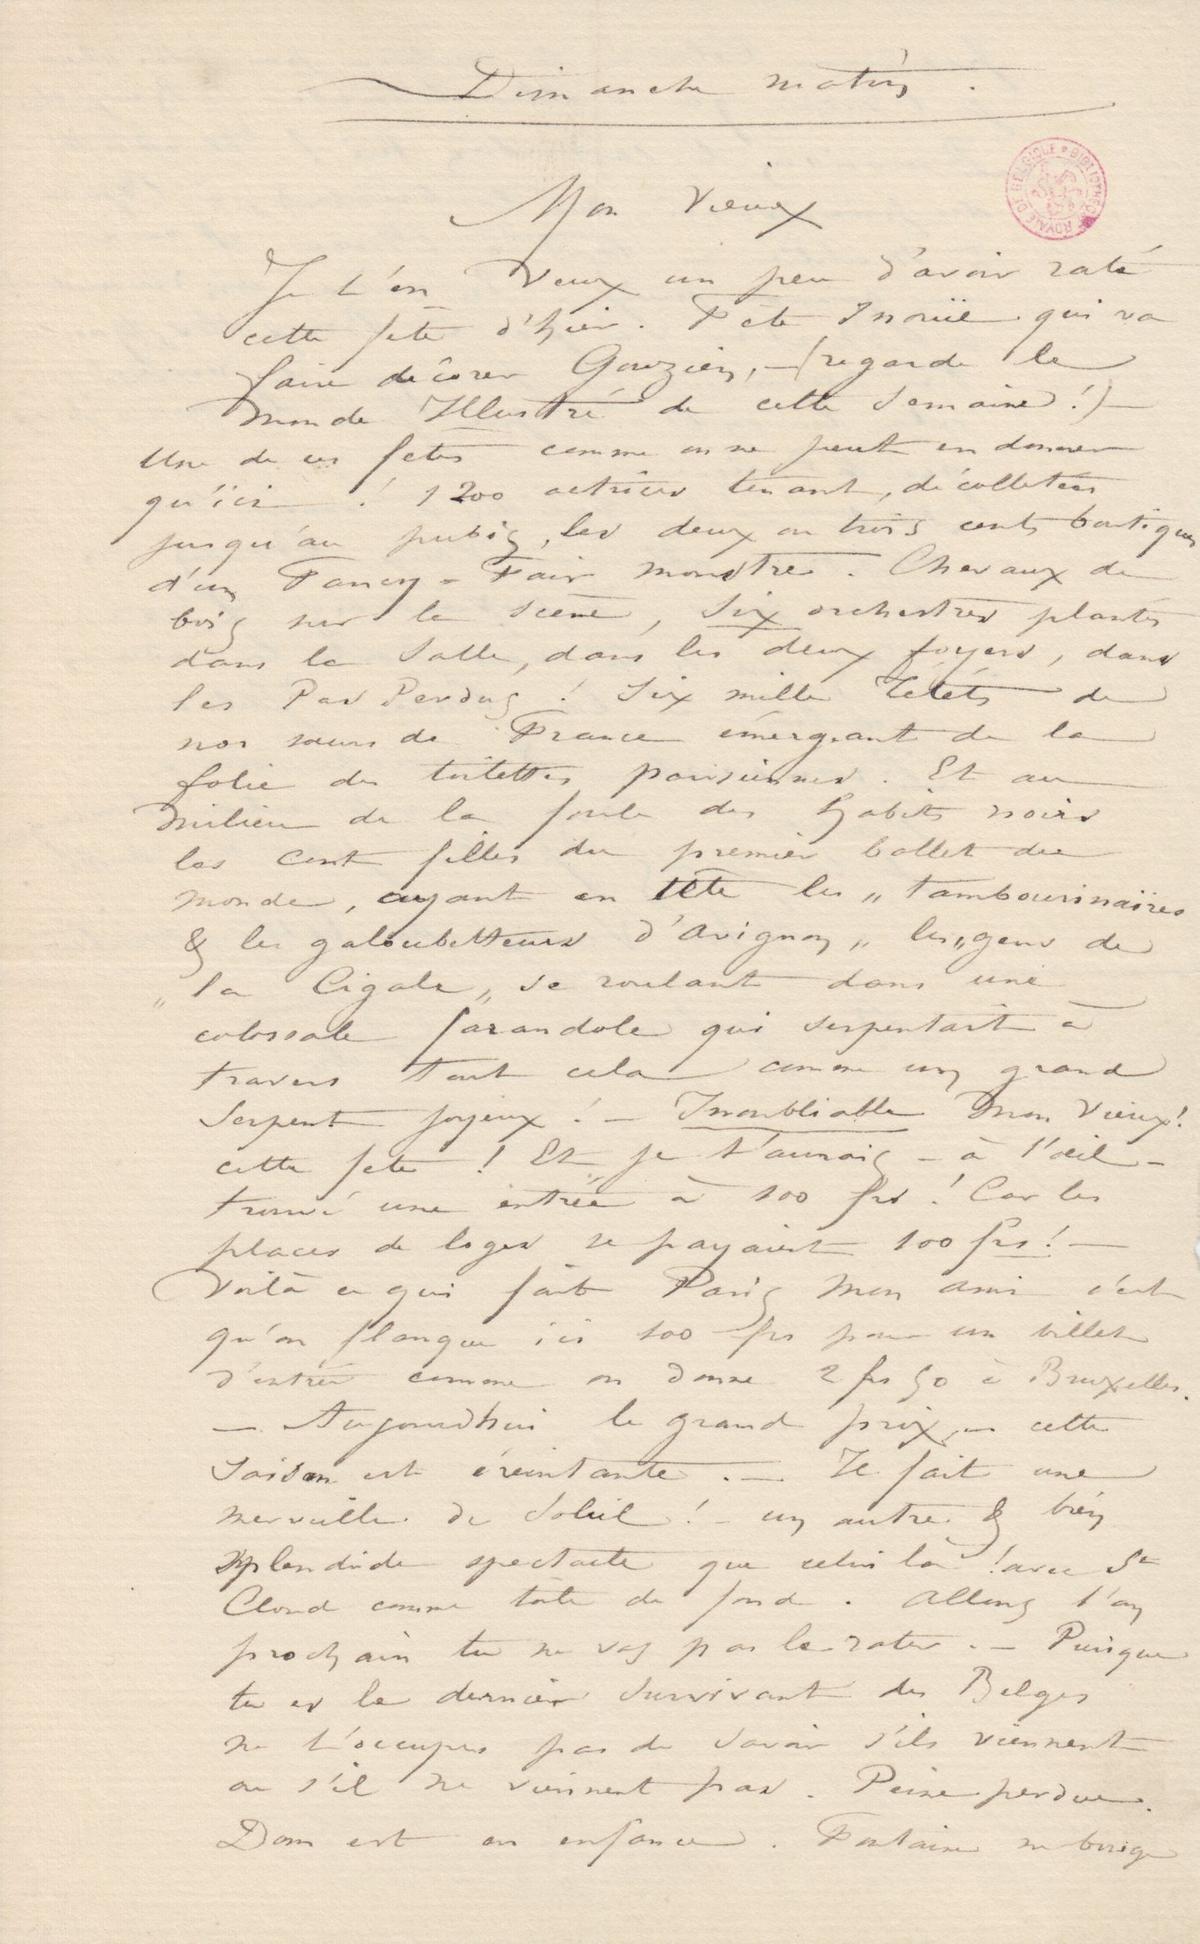 Dimanche matin.
BIBLIOTHÈQUE ROYALE DE BELGIQUE
Mon Vieux
Je t'en veux un peu d'avoir raté
cette fête d'hier. Fête Inouïe qui va
faire décorer Gouzien, – (regarde le
Monde Illustré de cette Semaine!) –
Une de ces fetes comme on ne peut en donner
qu'ici ! 1200 actrices tenant, décolletées
jusqu'au pubis, les deux ou trois cents boutiques
d'un Fancy-Fair monstre. Chevaux de
bois sur la scène, Six orchestres plantés
dans la Salle, dans les deux foyers, dans
les Pas Perdus ! Six mille Tététs de
nos sœurs de France émergeant de la
folie des toilettes parisiennes. Et au
milieu de la foule des habits noirs
les cent filles du premier ballet du
monde, ayant en tête les „ tambourinaires
& les galoubetteurs d'Avignon „ les „gens de
„ la Cigale „ se roulant dans une
colossale farandole qui serpentait à
travers tout cela comme un grand
Serpent joyeux ! – Inoubliable Mon Vieux!
cette fete ! Et je t'aurais – à l'œil –
trouvé une entrée à 100 frs ! Car les
places de loges se payaient 100 frs ! –
Voilà ce qui fait Paris Mon ami c'est
qu'on flanque ici 100 frs pour un billet
d'entrée comme on donne 2 frs 50 à Bruxelles.
– Aujourdhui le grand prix, – cette
saison est éreintante. – Il fait une
merveille de Soleil ! – un autre & bien
splendide spectacle que celui là ! avec St
Cloud comme toile de fond. Allons l'an
prochain tu ne vas pas le rater. – Puisque
tu es le dernier survivant des Belges
ne t'occupes pas de savoir s'ils viennent
ou s'il ne viennent pas. Peine perdue.
Dom est en enfance. Fontaine ne bouge